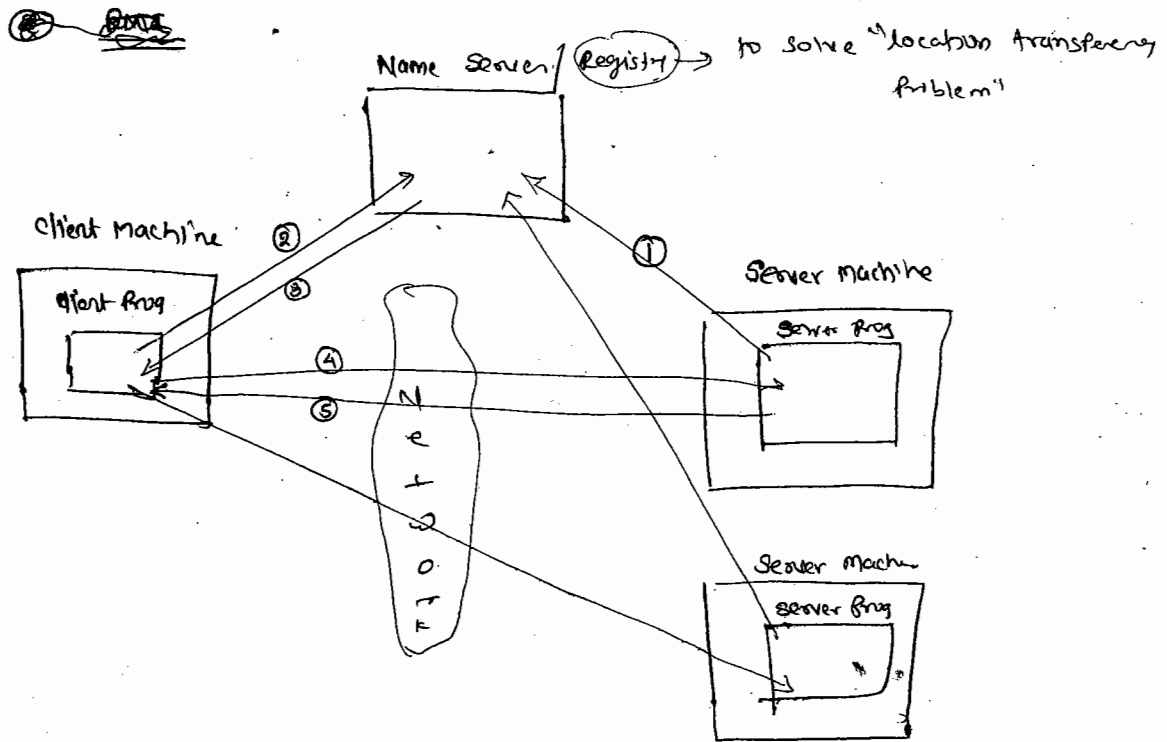 Name Server / Registry → to solve "location transperency
Problem"
Client Machine
Client Prog
②
③
①
Server Machine
Server Prog
④
⑤
Network
Server Machin
Server Prog